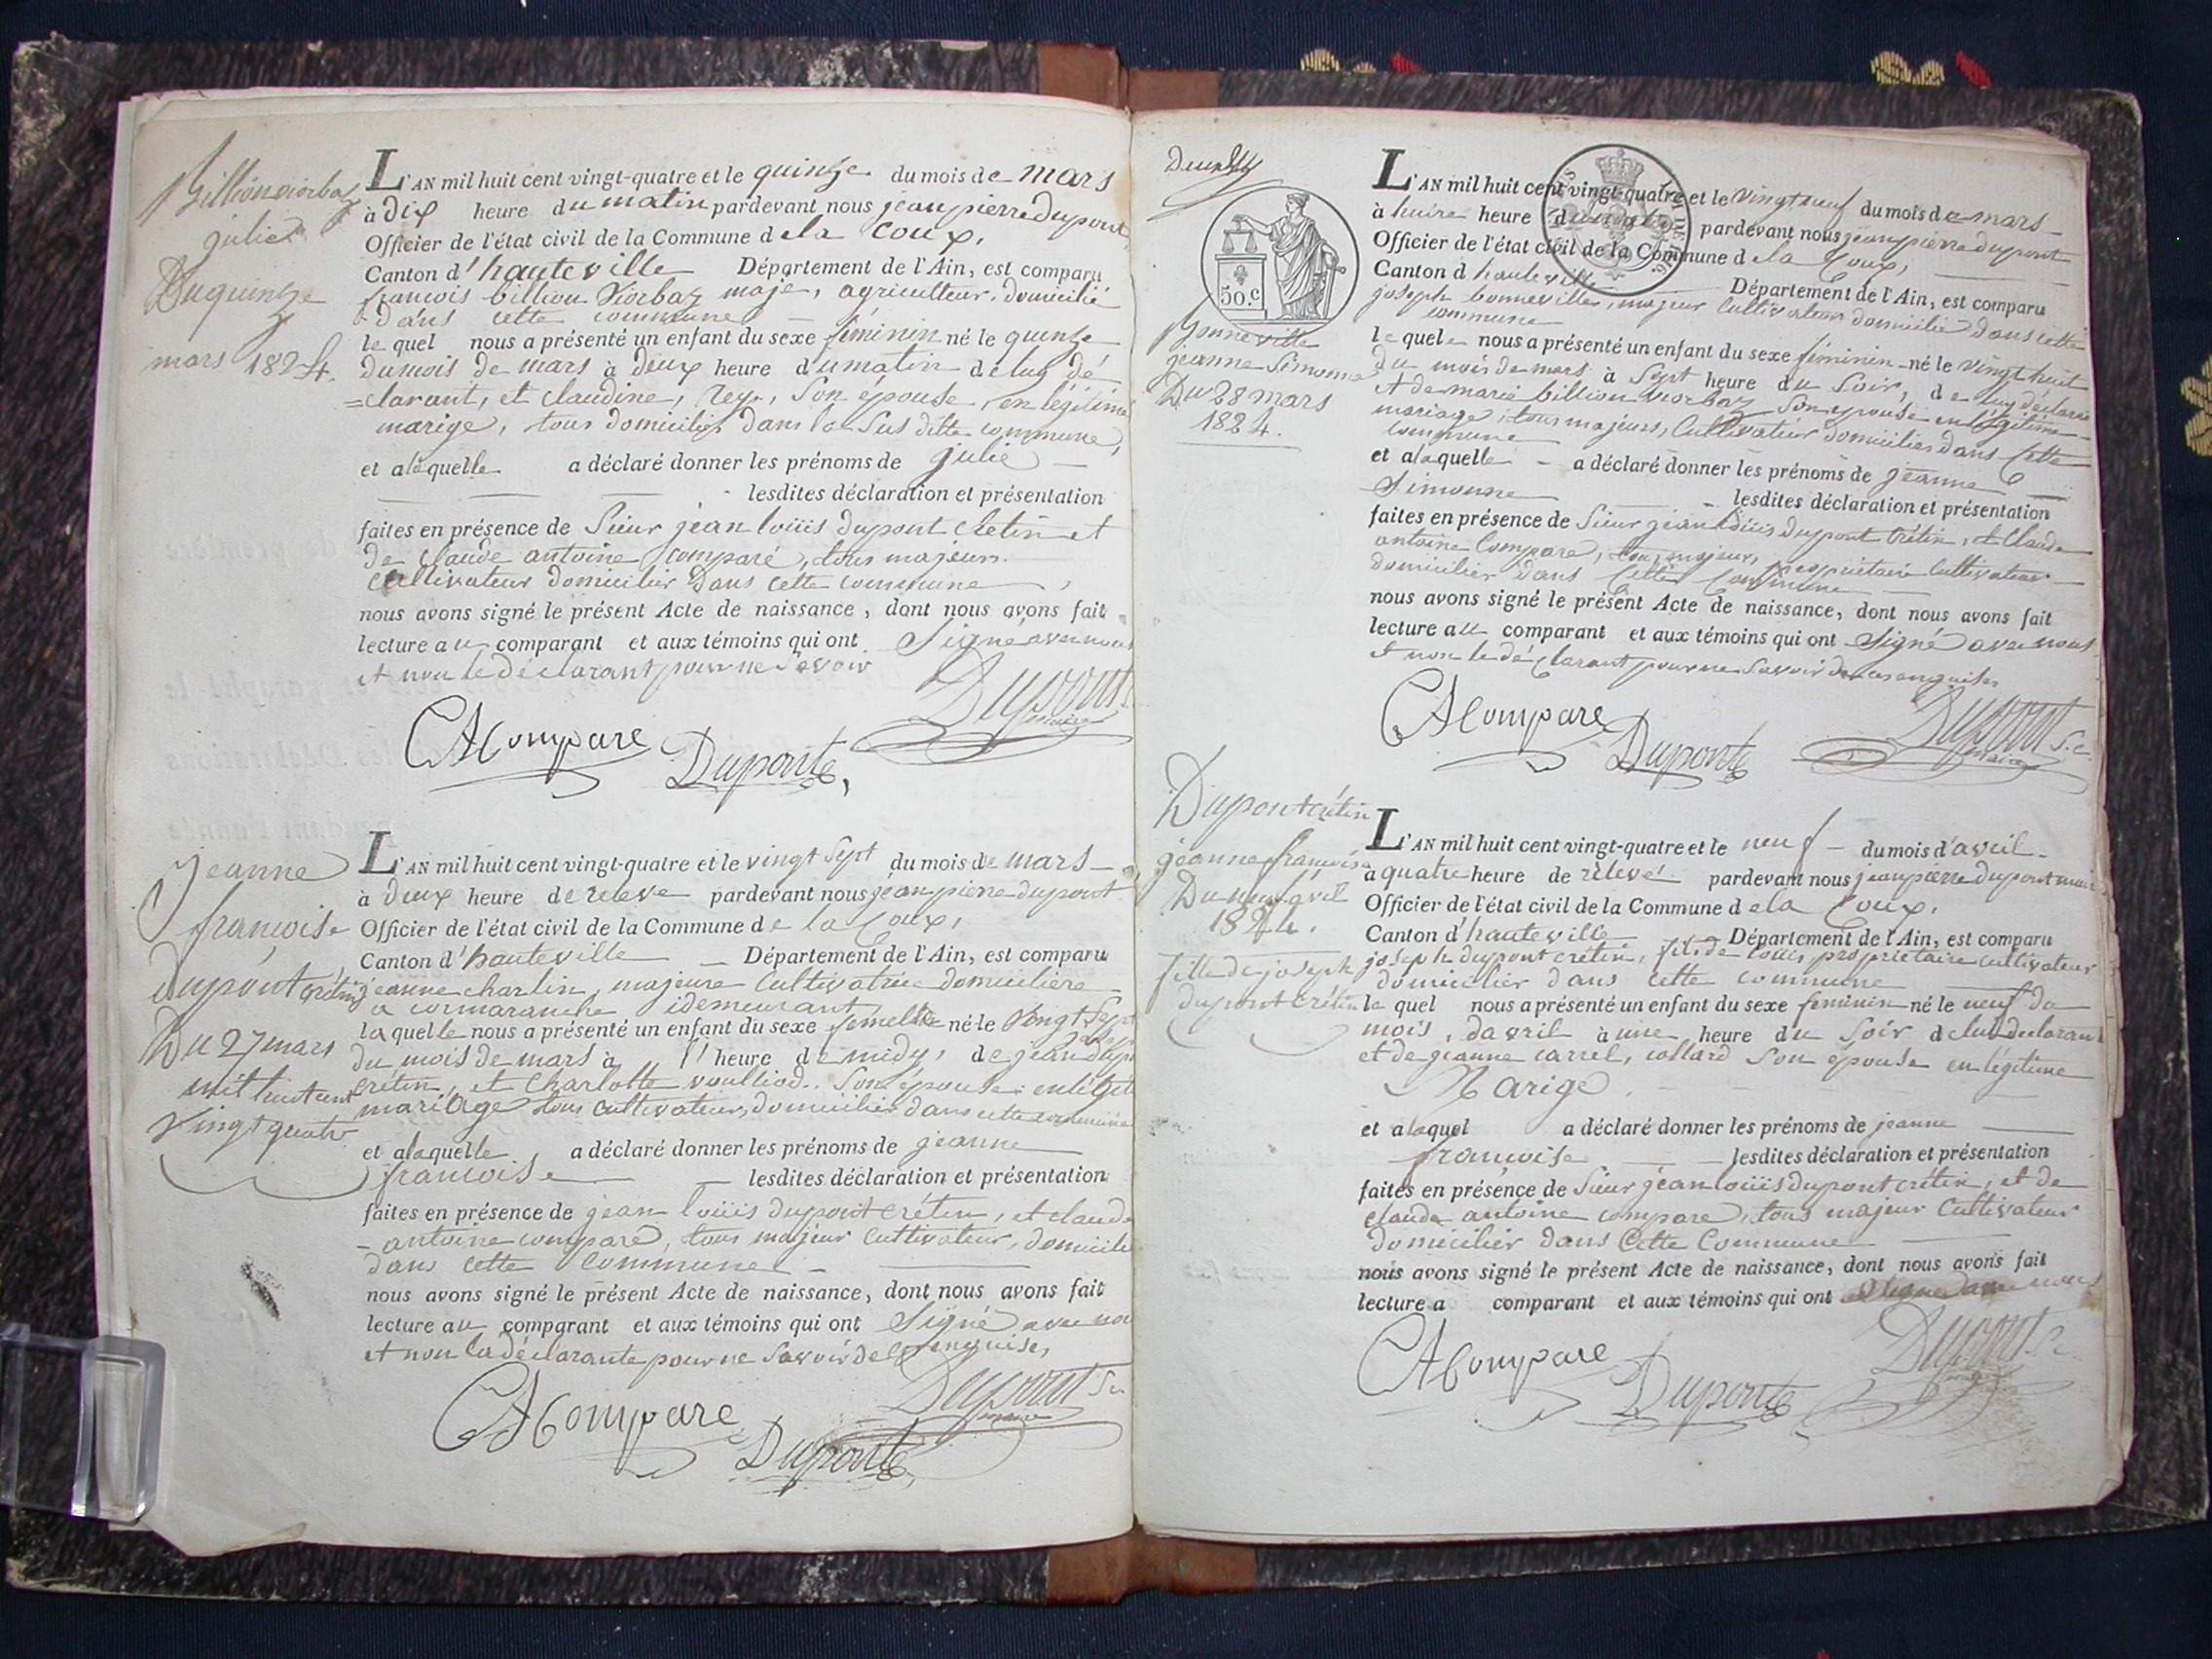 Billion Viorbaz
julie
Du quinze
mars 1824.
L'AN mil huit cent vingt-quatre et le quinze du mois de mars
à dix heure du matin pardevant nous jean pierre dupont
Officier de l'état civil de la Commune de la Coux,
Canton d'hauteville Département de l'Ain, est comparu
francois billion Viorbaz maje, agriculteur, domicilié
dans cette commune
le quel nous a présenté un enfant du sexe féminin né le quinze
du mois de mars à deux heure du matin de luy dé
=clarant, et claudine, Rey, son épouse, en légitime
marige, tous domiciliés dans la sus ditte commune,
et a laquelle a déclaré donner les prénoms de julie
lesdites déclaration et présentation
faites en présence de Sieur jean loüis dupont cretin et
de claude antoine comparé, tous majeurs
cultivateur domicilier dans cette commune,
nous avons signé le présent Acte de naissance, dont nous avons fait
lecture au comparant et aux témoins qui ont signé avec nous
et non le déclarant pour ne savoir
CA Compare Dupont Dupont
maire
Jeanne
francoise
dupont crétin
Du 27 mars
mil huit cent
vingt quatre
L'AN mil huit cent vingt-quatre et le vingt sept du mois de mars
à deux heure de releve pardevant nous jean pierre dupont
Officier de l'état civil de la Commune de la Coux,
Canton d'hauteville Département de l'Ain, est comparu
jeanne charlin, majeure cultivatrice domiciliere
a cormaranche idemeurant
la quelle nous a présenté un enfant du sexe femelle né le vingt sept
du mois de mars à heure de midy, de jean dupont
crétin, et Charlotte voulliod. son épouse en légit
mariage tous cultivateur, domicilier dans cette commune
et a laquelle a déclaré donner les prénoms de jeanne
francoise lesdites déclaration et présentation
faites en présence de jean loüis dupont crétin, et claude
antoine comparé, tous majeur cultivateur, domicile
dans cette commune
nous avons signé le présent Acte de naissance, dont nous avons fait
lecture au comparant et aux témoins qui ont signé avec nou
et non la déclarante pour ne savoir de enquise,
CA Compare Dupont Dupont
maire
50.c
Bonneville
jeanne Simonne
Du 28 mars
1824.
L'AN mil huit cent vingt-quatre et le vingt neuf du mois de mars
à huire heure du pardevant nous jean pierre dupont
Officier de l'état civil de la Commune de la Coux,
Canton d hauteville Département de l'Ain, est comparu
joseph bonneville, majeur cultivateur domicilié dans cette
commune
le quel nous a présenté un enfant du sexe féminin né le vingt huit
du mois de mars à sept heure du soir, de luy déclarant
et de marie billion viorbaz son epouse en légitime
mariage, tous majeurs, Cultivateur domicilier dans Cette
commune
et a laquelle a déclaré donner les prénoms de jeanne
Simonne lesdites déclaration et présentation
faites en présence de Sieur jean loüis dupont crétin, et claude
antoine Compare, tous majeur, propriétaire cultivateur
domicilier dans Cette Commune
nous avons signé le présent Acte de naissance, dont nous avons fait
lecture au comparant et aux témoins qui ont signé avec nous
et non le déclarant pour ne savoir de enquises
CA Compare Dupont Dupont
maire
Dupont crétin
jeanne francoise
Du neuf avril
1824.
fille de joseph
dupont crétin
L'AN mil huit cent vingt-quatre et le neuf du mois d'avril
à quatre heure de relevé pardevant nous jean pierre dupont maire
Officier de l'état civil de la Commune de la Coux.
Canton d'hauteville Département de l'Ain, est comparu
joseph dupont crétin, fils de loüis, propriétaire cultivateur
domicilier dans cette commune
le quel nous a présenté un enfant du sexe feminin né le neuf du
mois, davril à une heure du soir de lui declarant
et de jeanne carrel, collard son épouse en légitime
Marige
et a laquel a déclaré donner les prénoms de jeanne
francoise lesdites déclaration et présentation
faites en présence de Sieur jean loüis dupont crétin, et de
claude antoine compare, tous majeur cultivateur
domicilier dans Cette Commune
nous avons signé le présent Acte de naissance, dont nous avons fait
lecture a comparant et aux témoins qui ont signé avec nous
CA Compare Dupont Dupont